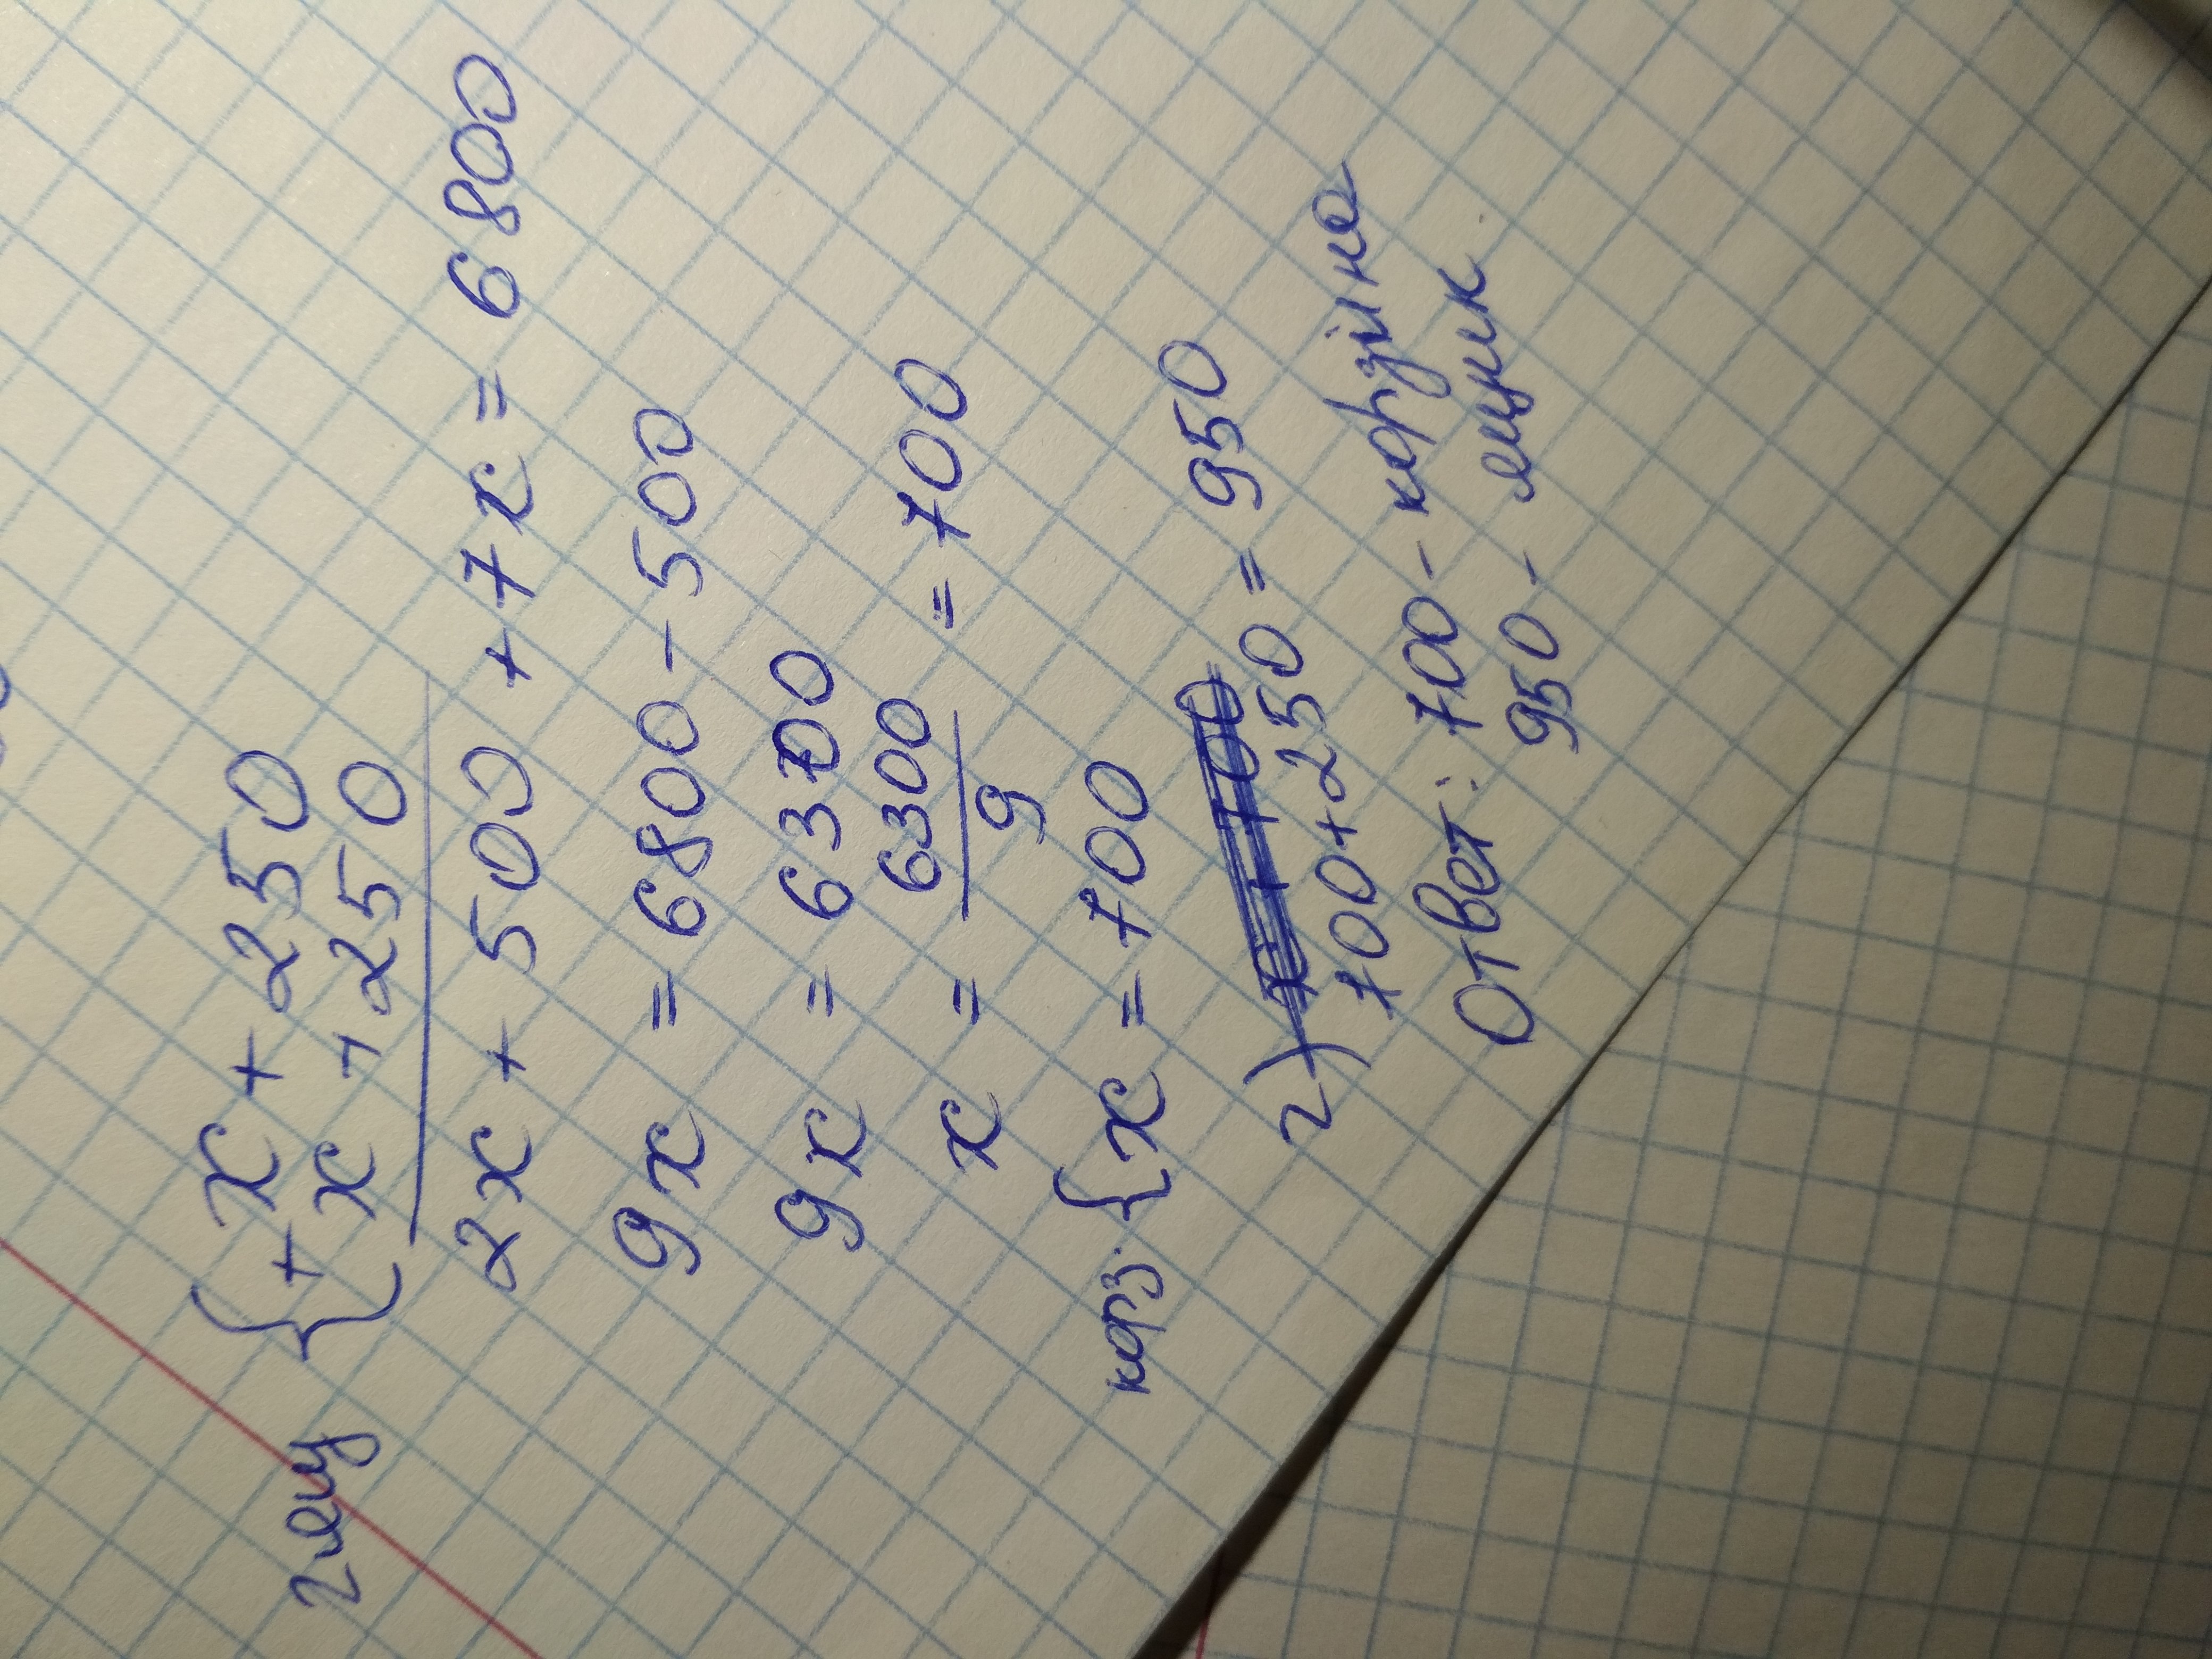 x + 250
2 ящ { + x + 250
2x + 500 + 7x = 6800
9x = 6800 - 500
9x = 6300
x = 6300/9 = 700
корз. { x = 700
2)
700 + 250 = 950
Ответ: 700 - корзинка
950 - ящик